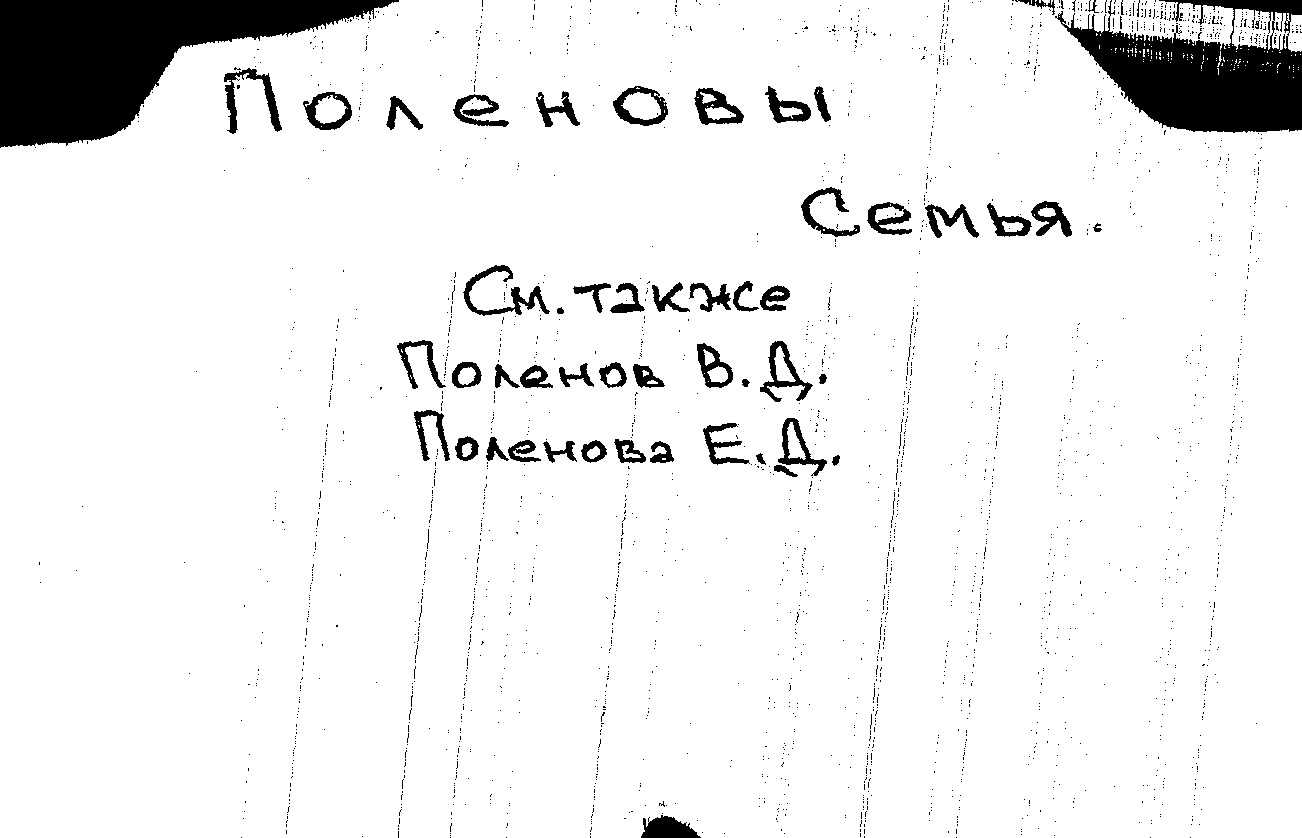 Поленовы
Семья.
См. также
Поленов В.Д.
Поленова Е.Д.